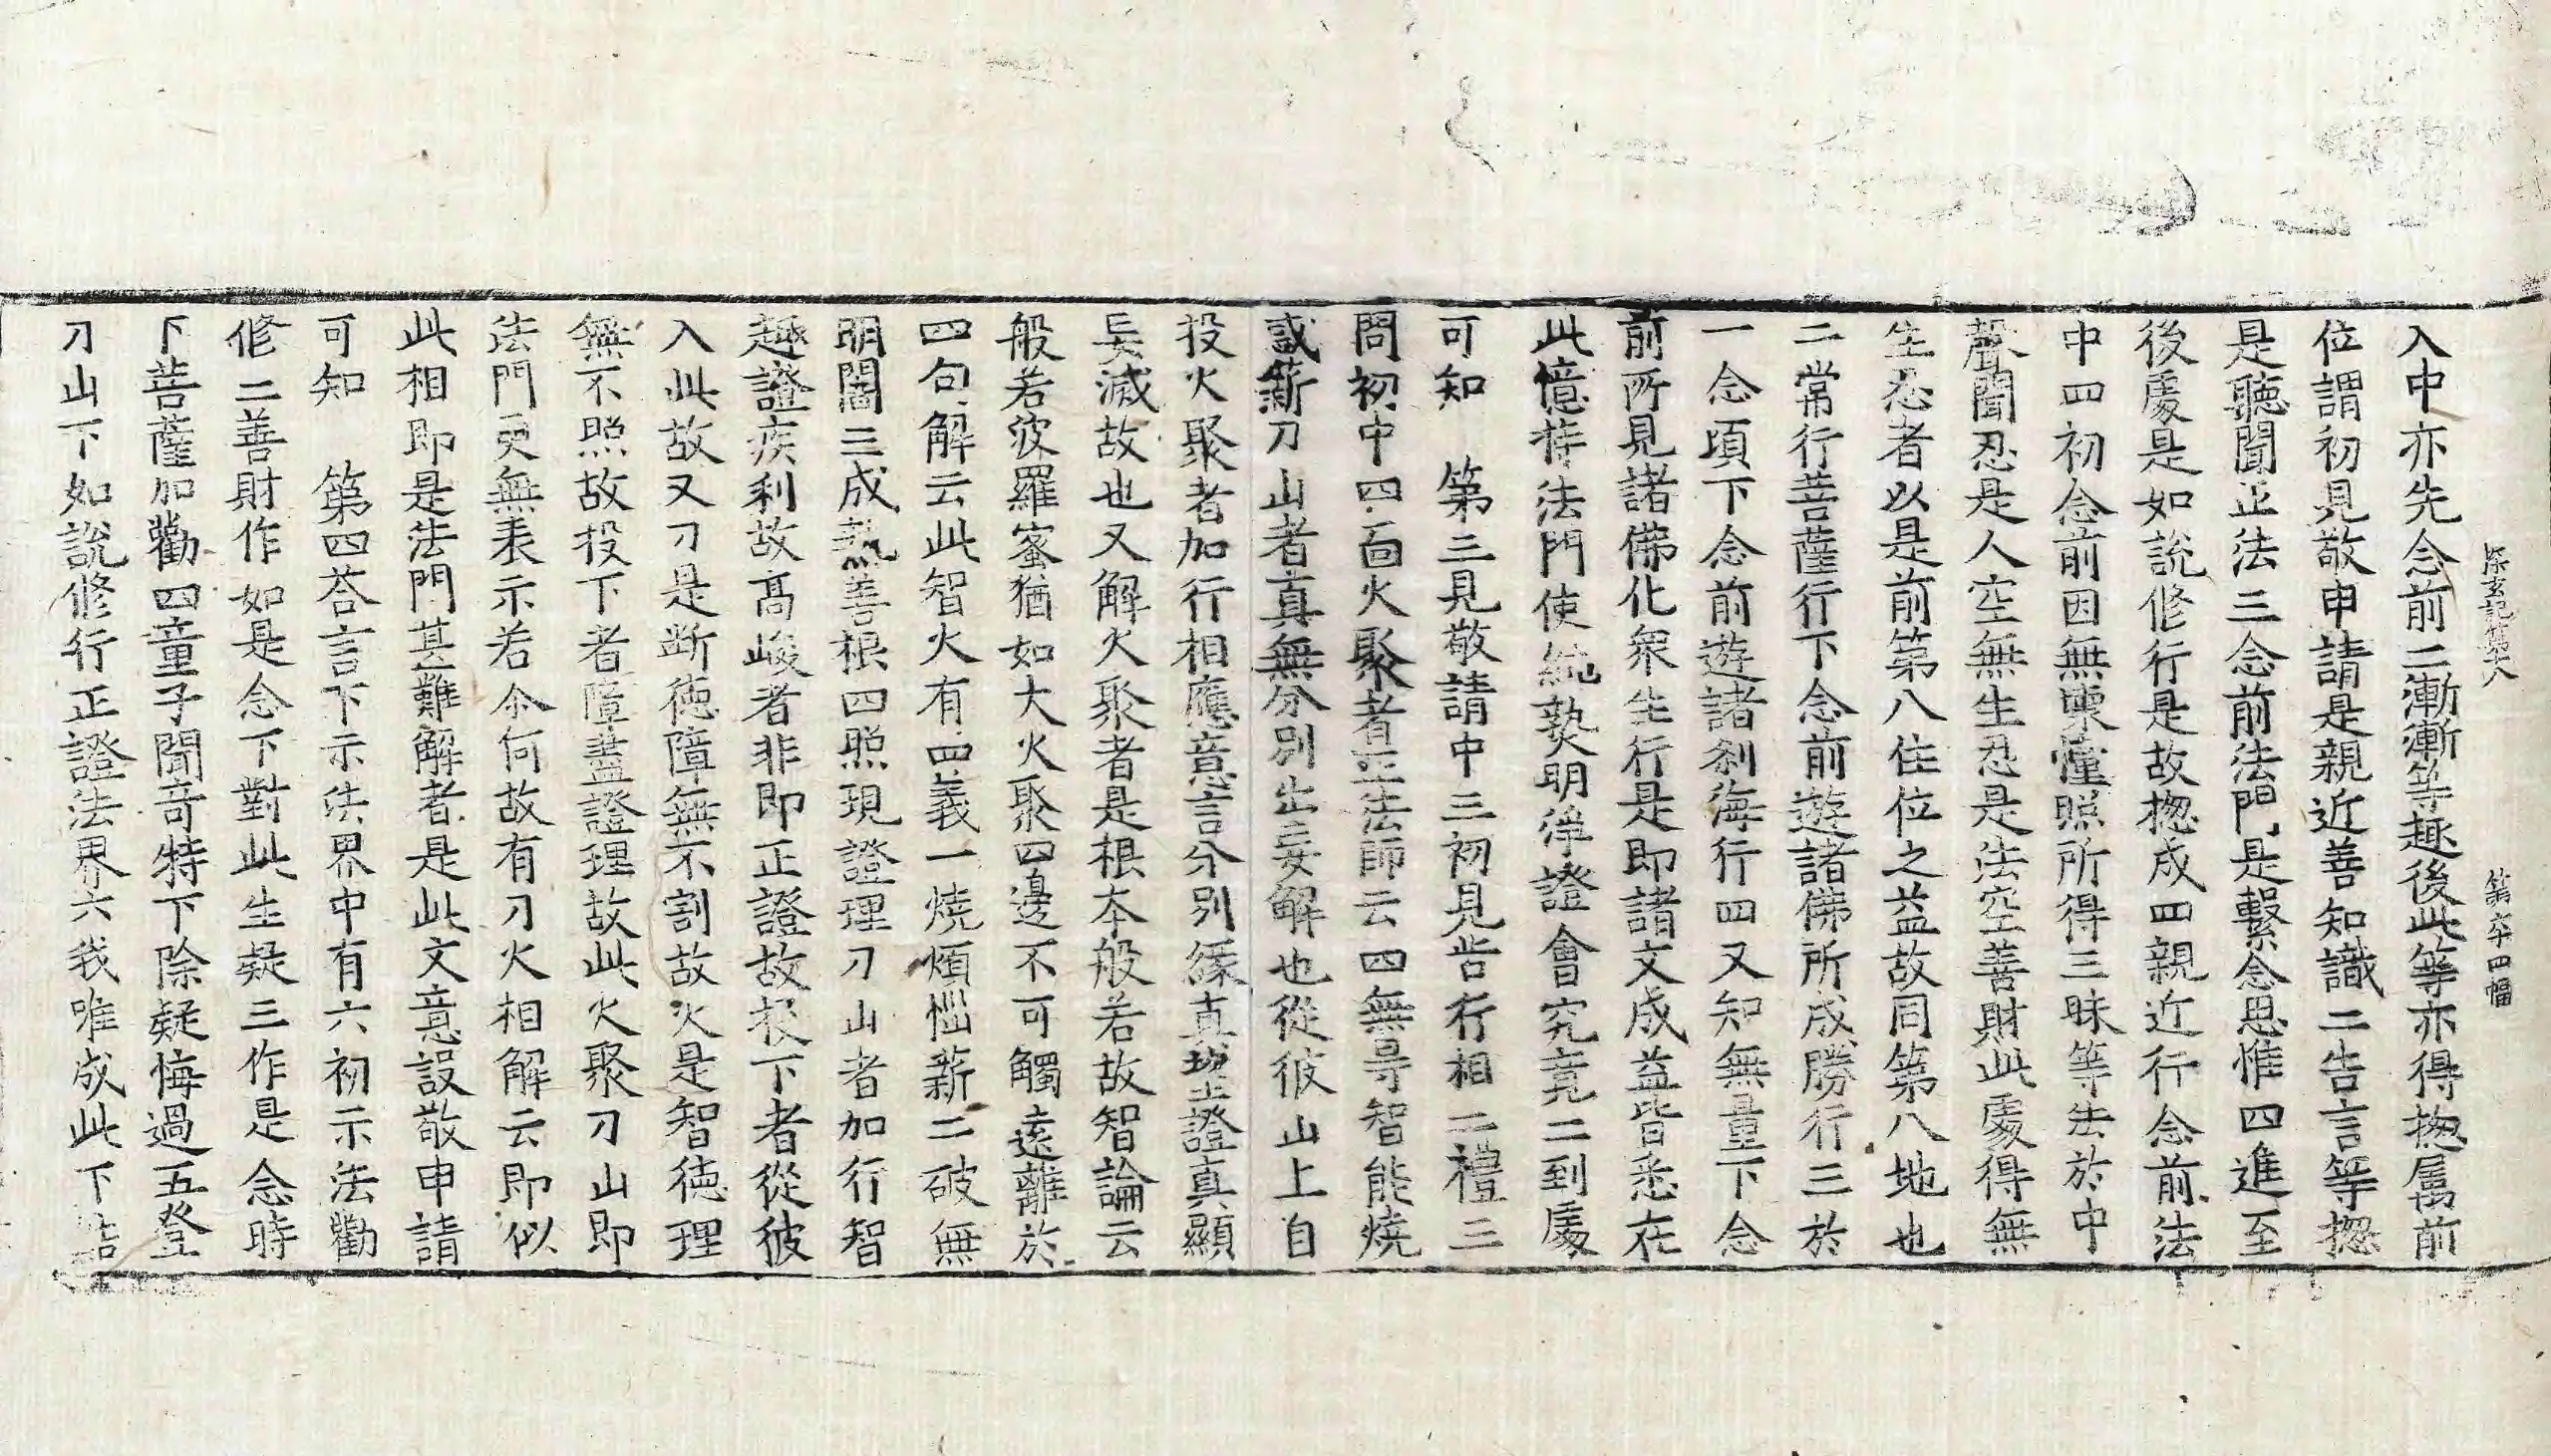 探玄記第十八 第六十四幅
入中亦先念前二漸漸等趣後此等亦得揔属前
位謂初見敬申請是親近善知識二告言等揔
是聽聞正法三念前法門是繫念思惟四進至
後處是如說修行是故揔成四親近行念前法
中四初念前因無憧照所得三昧等法於中
聲聞忍是人空無生忍是法空善財此處得無
生忍者以是前第八住位之益故同第八地也
二常行菩薩行下念前遊諸佛所成勝行三於
一念頃下念前遊諸刹海行四又知無量下念
前所見諸佛化衆生行是即諸文成益皆悉在
此憶持法門使純熟明淨證會究竟二到處
可知　第三見敬請中三初見呰行相二禮三
問初中四面火聚者立法師云四無㝵智能燒
惑薪刀山者真無分別出妄解也從彼山上自
投火聚者加行相應意言分別緣真望證真顯
妄滅故也又解火聚者是根本般若故智論云
般若波羅蜜猶如大火聚四邊不可觸遠離於
四句解云此智火有四義一燒煩惱薪二破無
明闇三成熟善根四照現證理刀山者加行智
趣證疾利故高峻者非即正證故投下者從彼
入此故又刀是断德障無不割故火是智德理
無不照故投下者障盡證理故此火聚刀山即
法門更無表示若尒何故有刀火相解云即似
此相即是法門甚難解者是此文意設敬申請
可知　第四荅言下示法界中有六初示法勸
修二善財作如是念下對此生疑三作是念時
下菩薩加勸四童子聞竒特下除疑悔過五登
刀山下如說修行正證法界六我唯成此下結